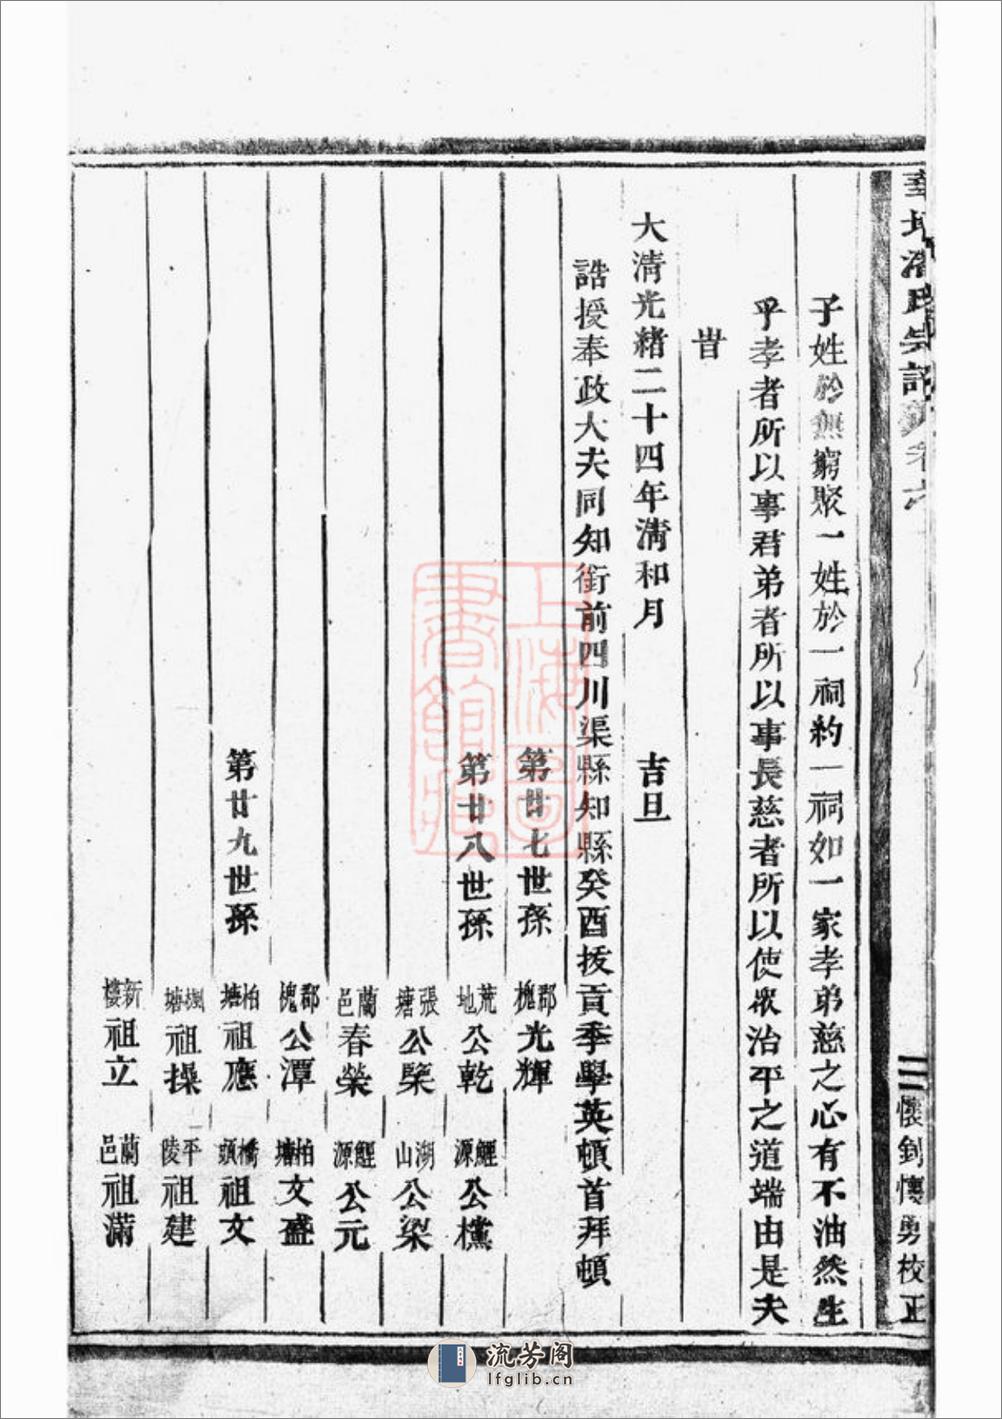 子姓於無窮聚一姓於一祠約一祠如一家孝弟慈之心有不油然生
乎孝者所以事君弟者所以事長慈者所以使眾治平之道端由是夫
旹
大清光緒二十四年清和月 吉旦
誥授奉政大夫同知銜前四川渠縣知縣癸酉拔貢季學英頓首拜頓
第廿七世孫 郡槐光輝
第廿八世孫 荒地公乾 鯉源公欓
張塘公槩 湖山公梁
蘭邑春榮 鯉源公元
郡槐公潭 柏塘文盛
第廿九世孫 柏塘祖應 橋頭祖文
楓塘祖操 平陵祖建
新樓祖立 蘭邑祖滿
懷釗懷勇校正
上海圖書館藏
流芳阁
lfglib.cn